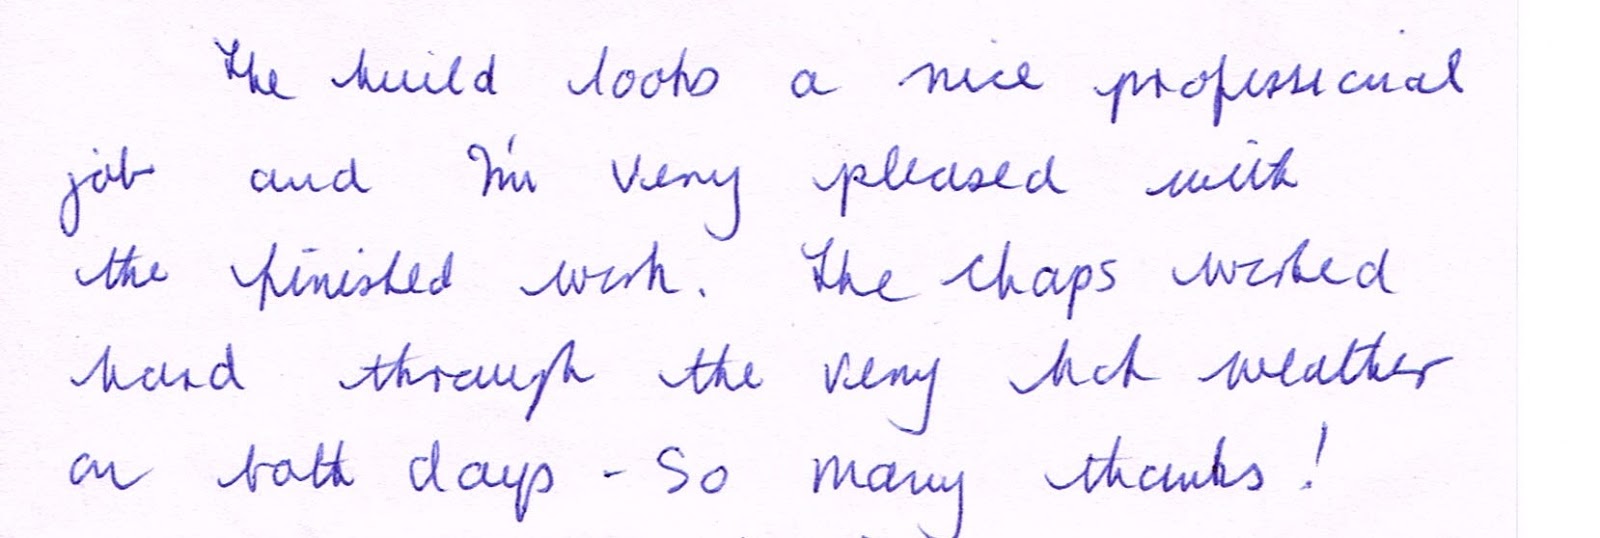 The build looks a nice professional
job and I'm very pleased with
the finished work. The chaps worked
hard through the very hot weather
on both days - So many thanks!